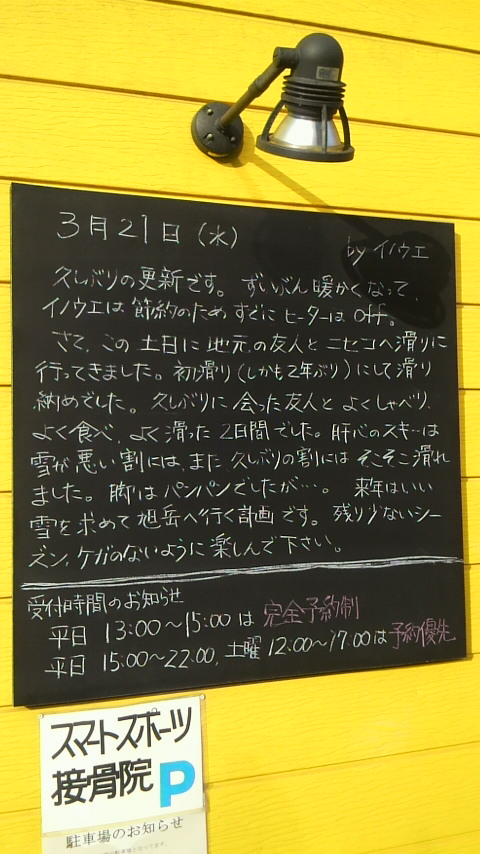 3月21日（水）
by イノウエ
久しぶりの更新です。ずいぶん暖かくなって、
イノウエは節約のためすでにヒーターはoff。
さて、この土日に地元の友人とニセコへ滑りに
行ってきました。初滑り（しかも2年ぶり）にして滑り
納めでした。久しぶりに会った友人とよくしゃべり、
よく食べ、よく滑った2日間でした。肝心のスキーは
雪が悪い割には、また久しぶりの割にはそこそこ滑れ
ました。脚はパンパンでしたが…。来年はいい
雪を求めて旭岳へ行く計画です。残り少ないシー
ズン、ケガのないように楽しんで下さい。
受付時間のお知らせ
平日 13:00～15:00は 完全予約制
平日 15:00～22:00、土曜 12:00～17:00は予約優先
スマートスポーツ
接骨院 P
駐車場のお知らせ